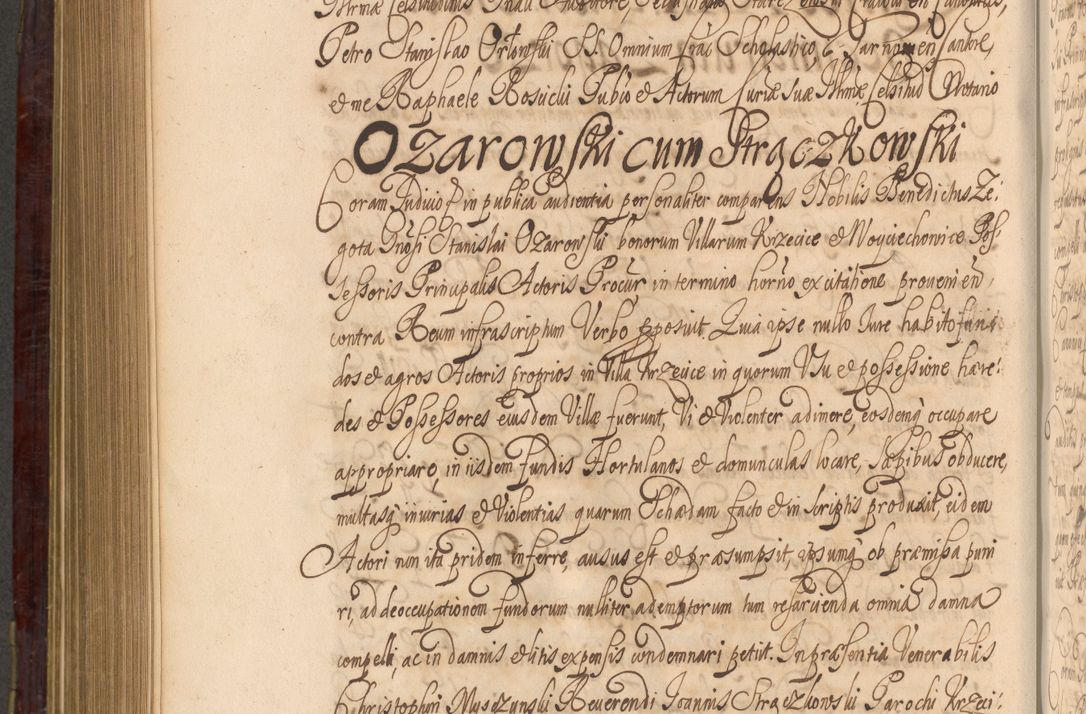 Petro Stanislao Orłowski SS. Omnium Crac. Scholastico, Tarnowien Cantore,
et me Raphaele Rosiicki Publico et Actorum Curiæ Suæ Illmæ Celsitud Notario
Ożarowski cum Strączkowski
Coram Judicio et in publica audientia personaliter comparens Nobilis Benedictus Ze:
gota Gnosi Stanislai Ożarowski bonorum Villarum Krzecice et Woyciechowice Pos
sessoris Principalis Actoris Procur in termino horno ex citatione provenien,
contra Reum infrascriptum Verbo pposuit. Quia ipse nullo Iure habito fun:
dos et agros Actoris proprios in Villa Krzecice in quorum Usu et possessione hære:
des et Possessores eiusdem Villæ fuerunt, Vi et Violenter adimere, eosdemq occupare
appropriare, in iisdem fundis Hortulanos et domunculas locare, Sæpibus obducere,
multasq iniurias et Violentias quarum Schædam facto et in Scriptis produxit, eidem
Actori non ita pridem inferre, ausus est et præsumpsit, ipsumq ob præmissa puni
ri, ad deoccupationem fundorum nulliter ademptorum tum resarcienda omnia damna
compelli, ac in damnis et litis expensis condemnari petiit. In præsentia Venerabilis
Christophori Muszynski Reverendi Joannis Strączkowski Parochi Krzeci: